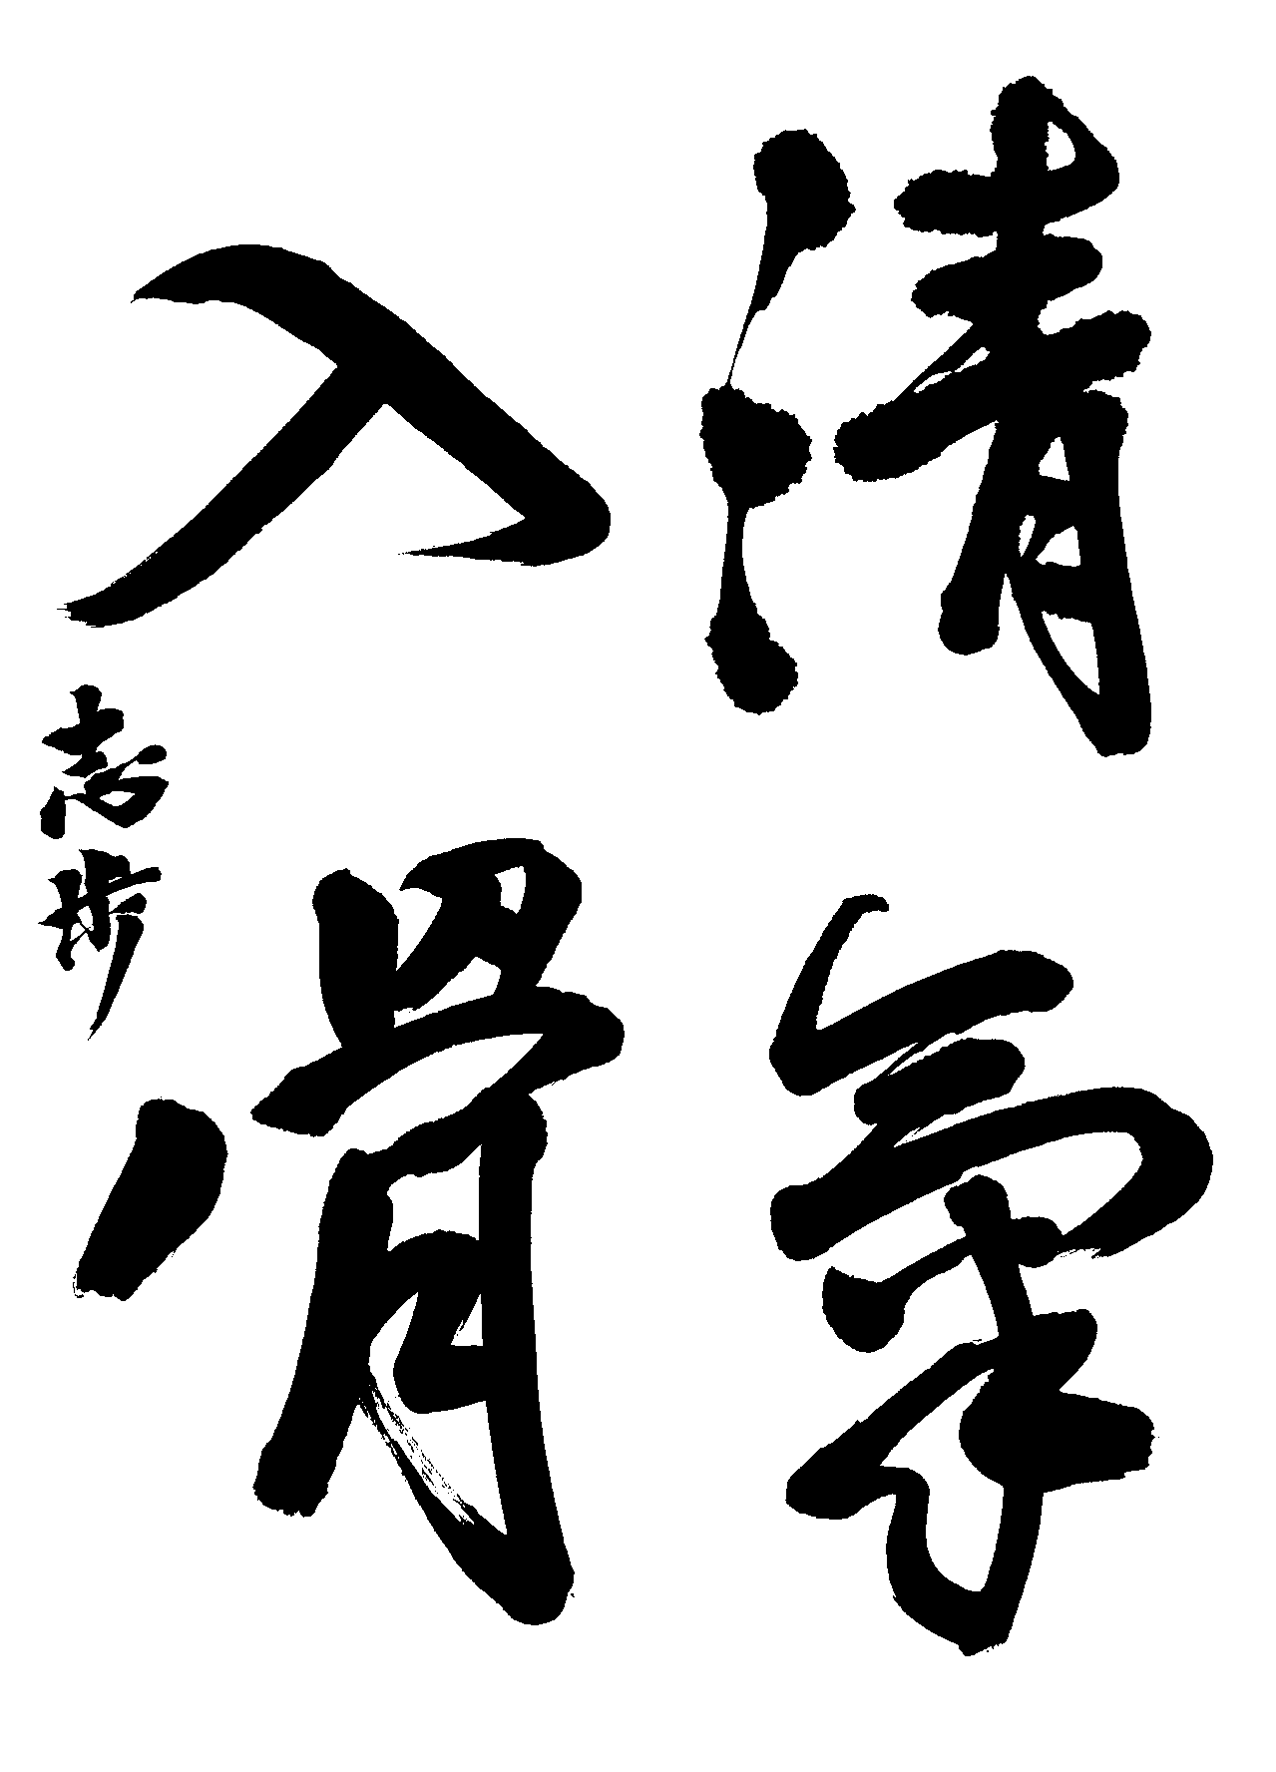 清氣
入骨
志歩